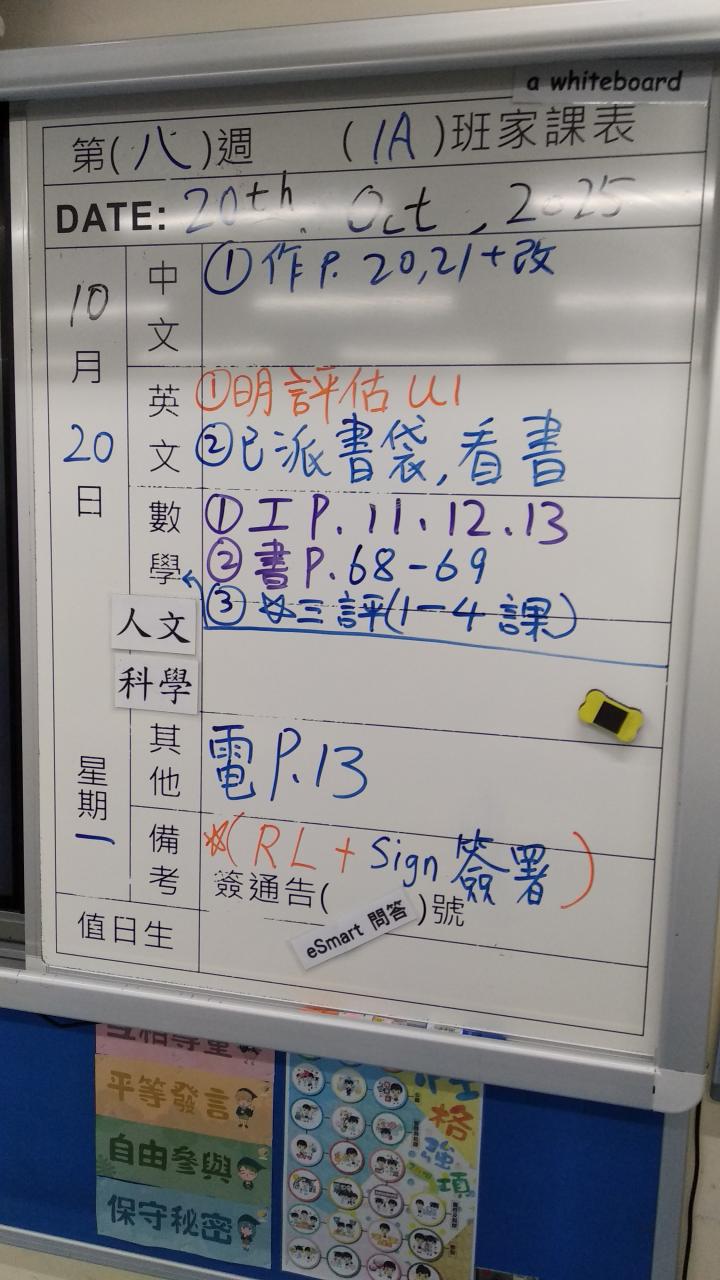 a whiteboard
第(八)週 (1A)班家課表
DATE: 20th. Oct, 2025
10月20日 星期一
中文 ①作P. 20,21+改
英文 ①明評估 U1
②已派書袋,看書
數學 ①工P.11、12、13
②書P.68-69
③☆三評(1-4課)
人文
科學
其他 電P.13
備考 ☆(RL + Sign 簽署)
簽通告( )號
eSmart 問答
值日生
互相尊重
平等發言
自由參與
保守秘密
性格強項